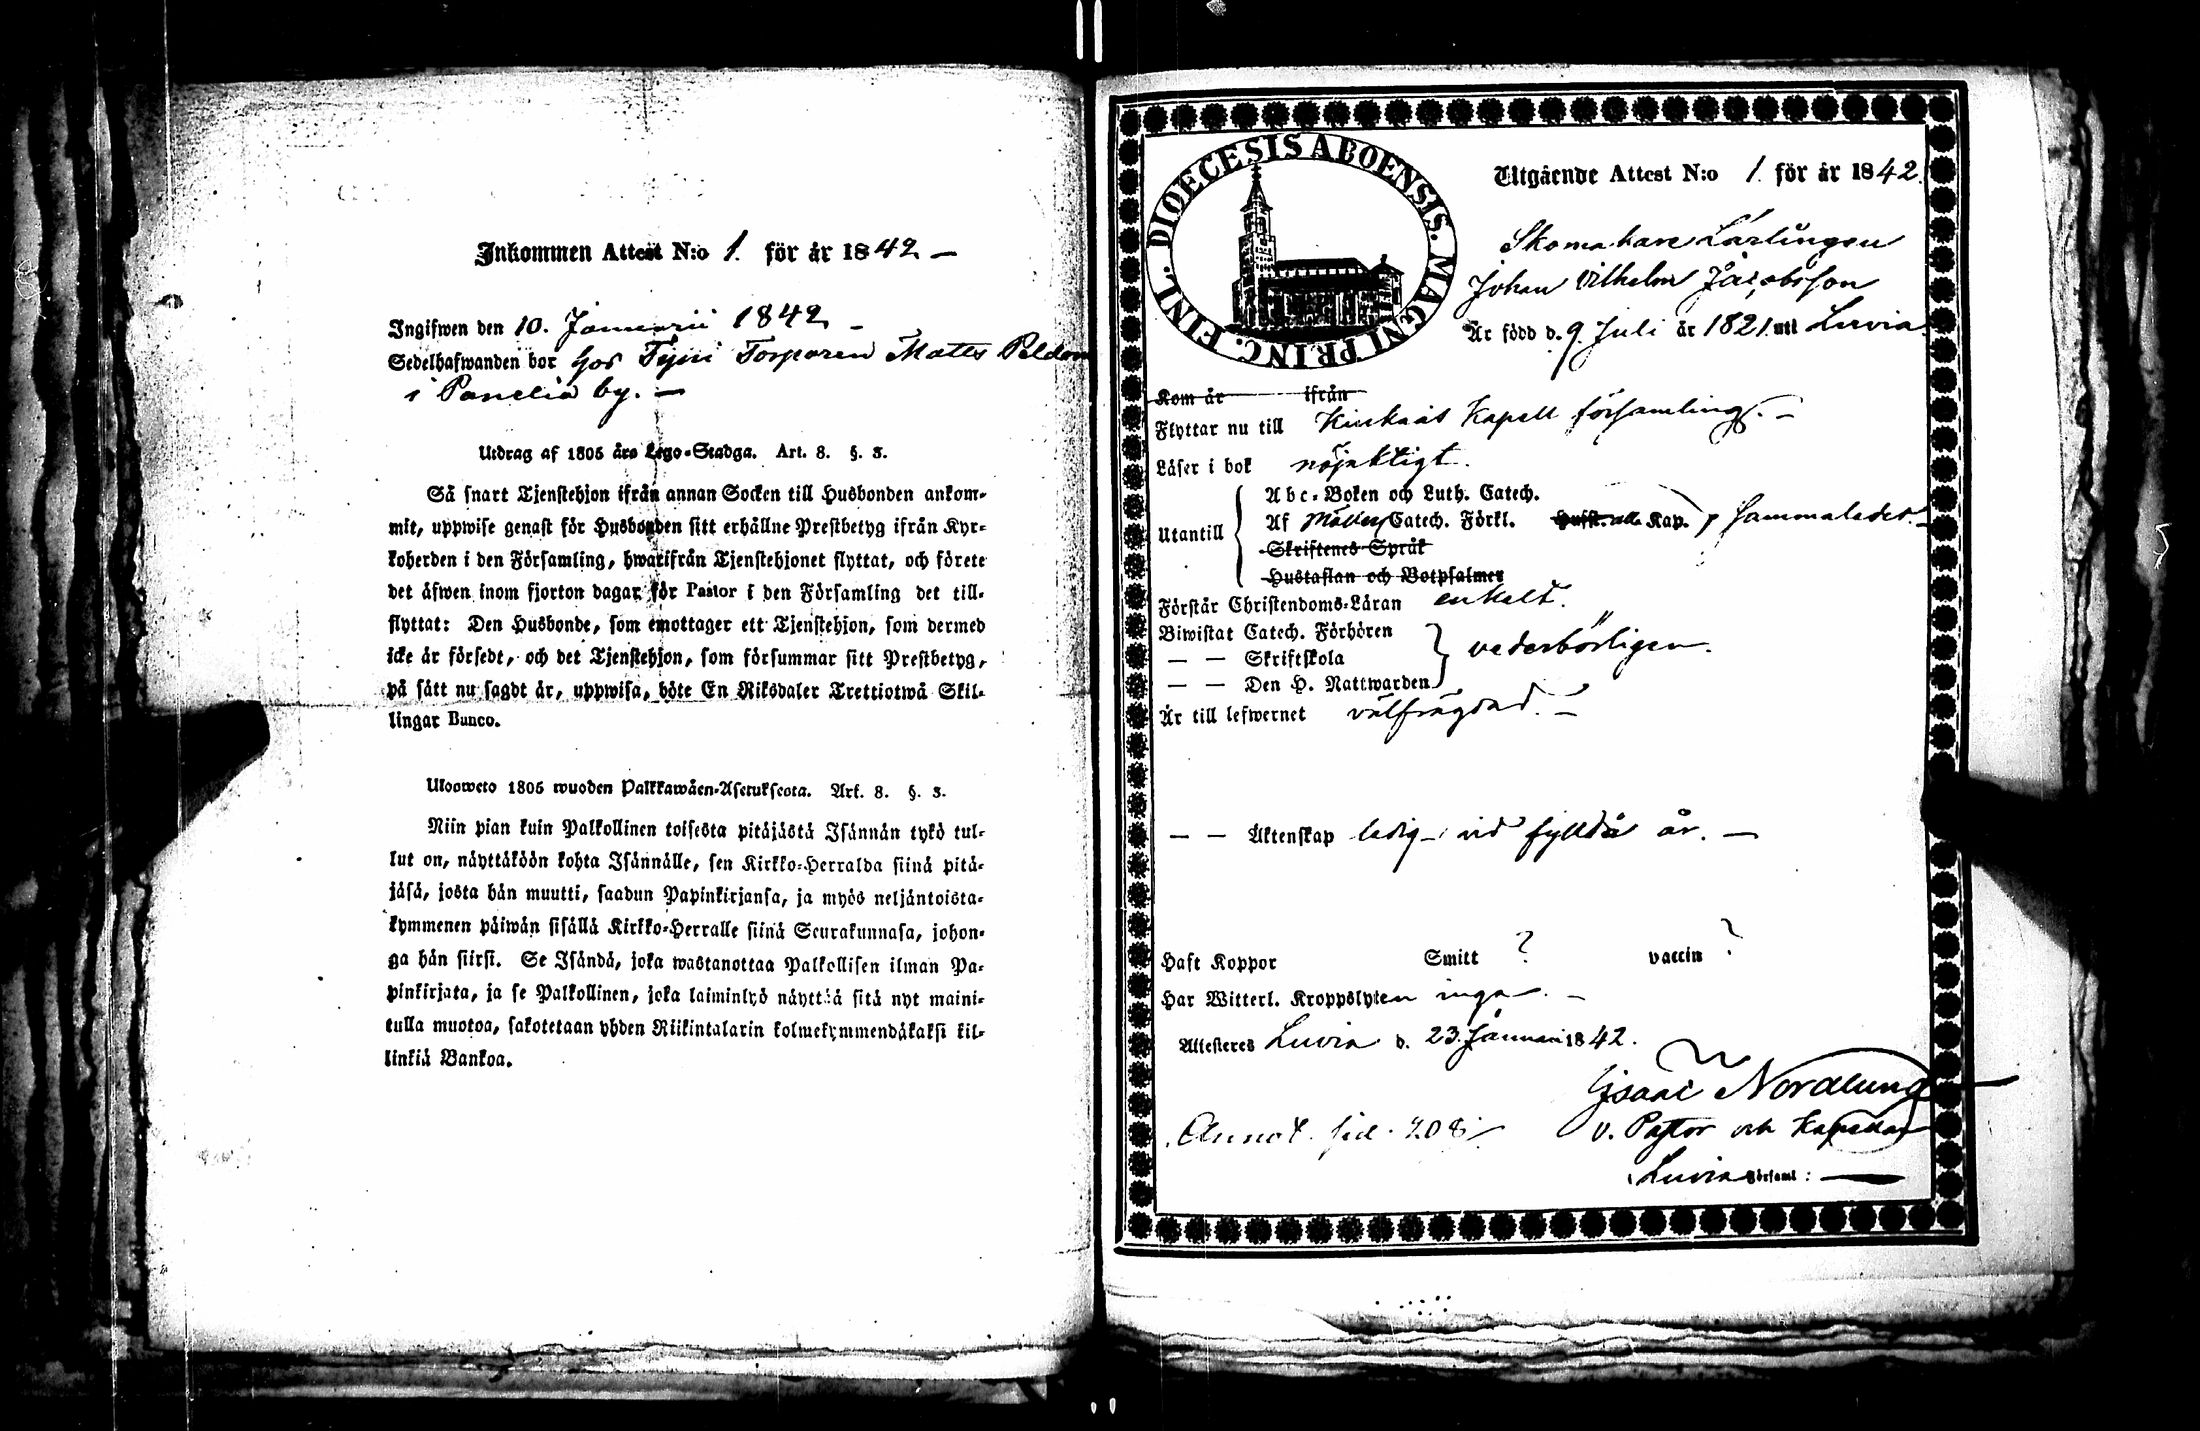 Inkommen Attest N:o 1. för år 1842 —
Ingifwen den 10. Januarii 1842 —
Sedelhafwanden bor hos Torparen Matts
i Panelia by. —
Utdrag af 1805 års Lego-Stadga. Art. 8. §. 3.
Så snart Tjenstehjon ifrån annan Socken till Husbonden ankom-
mit, uppwise genast för Husbonden sitt erhållne Prestbetyg ifrån Kyr-
koherden i den Församling, hwarifrån Tjenstehjonet flyttat, och förete
det äfwen inom fjorton dagar för Pastor i den Församling det till-
flyttat: Den Husbonde, som emottager ett Tjenstehjon, som dermed
icke är försedt, och det Tjenstehjon, som försummar sitt Prestbetyg,
på sätt nu sagdt är, uppwisa, böte En Riksdaler Trettiotwå Skil-
lingar Banco.
Ulosweto 1805 wuoden Palkkawäen-Asetuksesta. Art. 8. §. 3.
Niin pian kuin Palkollinen toisesta pitäjästä Isännän tykö tul-
lut on, näyttäköön kohta Isännälle, sen Kirkko-Herralda siinä pitä-
jäsä, josta hän muutti, saadun Papinkirjansa, ja myös neljäntoista-
kymmenen päiwän sisällä Kirkko-Herralle siinä Seurakunnasa, johon-
ga hän siirsi. Se Isändä, joka wastanottaa Palkollisen ilman Pa-
pinkirjata, ja se Palkollinen, joka laiminlyö näyttää sitä nyt maini-
tulla muotoa, sakotetaan yhden Riikintalarin kolmekymmendäkaksi kil-
linkiä Bankoa.
DIOECESIS ABOENSIS. MAGNI PRINC. FINL.
Utgående Attest N:o 1. för år 1842.
Skomakare Lärlingen
Johan Vilhelm Jacobsson
Är född d. 9. Juli år 1821. uti Luvia
Kom år ifrån
Flyttar nu till Kiukais Kapell församling. —
Läser i bok nöjaktigt.
Utantill
Abc-Boken och Luth. Catech.
Af Möllers Catech. Förkl. Hufst. alla Kap. sammaledes. —
Skriftenes Språk
Hustaflan och Botpsalmer
Förstår Christendoms-Läran enkelt.
Biwistat Catech. Förhören
— — Skriftskola vederbörligen.
— — Den H. Nattwarden
Är till lefwernet välfrägdad. —
— — Äktenskap ledig vid fyllda år. —
Haft Koppor Smitt ? vaccin ?
Har Witterl. Kroppslyten inga. —
Attesteres Luvia d. 23. Januari 1842.
Isaac Nordlund
Annot. sid. 208. v. Pastor och Kapellan
Luvia Församl: —